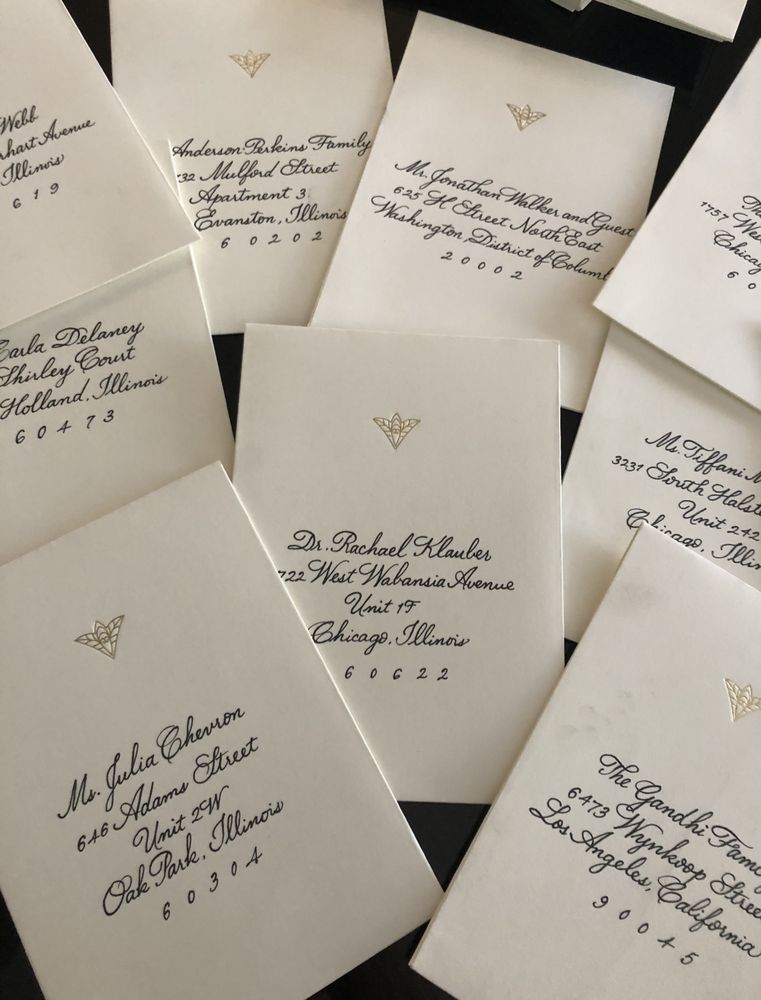 Webb
Avenue
Illinois
6 1 9
Anderson-Perkins Family
32 Mulford Street
Apartment 3
Evanston, Illinois
6 0 2 0 2
Mr. Jonathan Walker and Guest
625 H Street North East
Washington, District of
2 0 0 0 2
1757
6 0
Carla Delaney
Shirley Court
Holland, Illinois
6 0 4 7 3
Dr. Rachael Klauber
722 West Wabansia Avenue
Unit 1F
Chicago, Illinois
6 0 6 2 2
Ms. Tiffani
3231 South
Unit 242
Chicago,
Ms. Julia Chevron
646 Adams Street
Unit 2W
Oak Park, Illinois
6 0 3 0 4
The Gandhi
6473 Wynkoop Street
Los Angeles, California
9 0 0 4 5